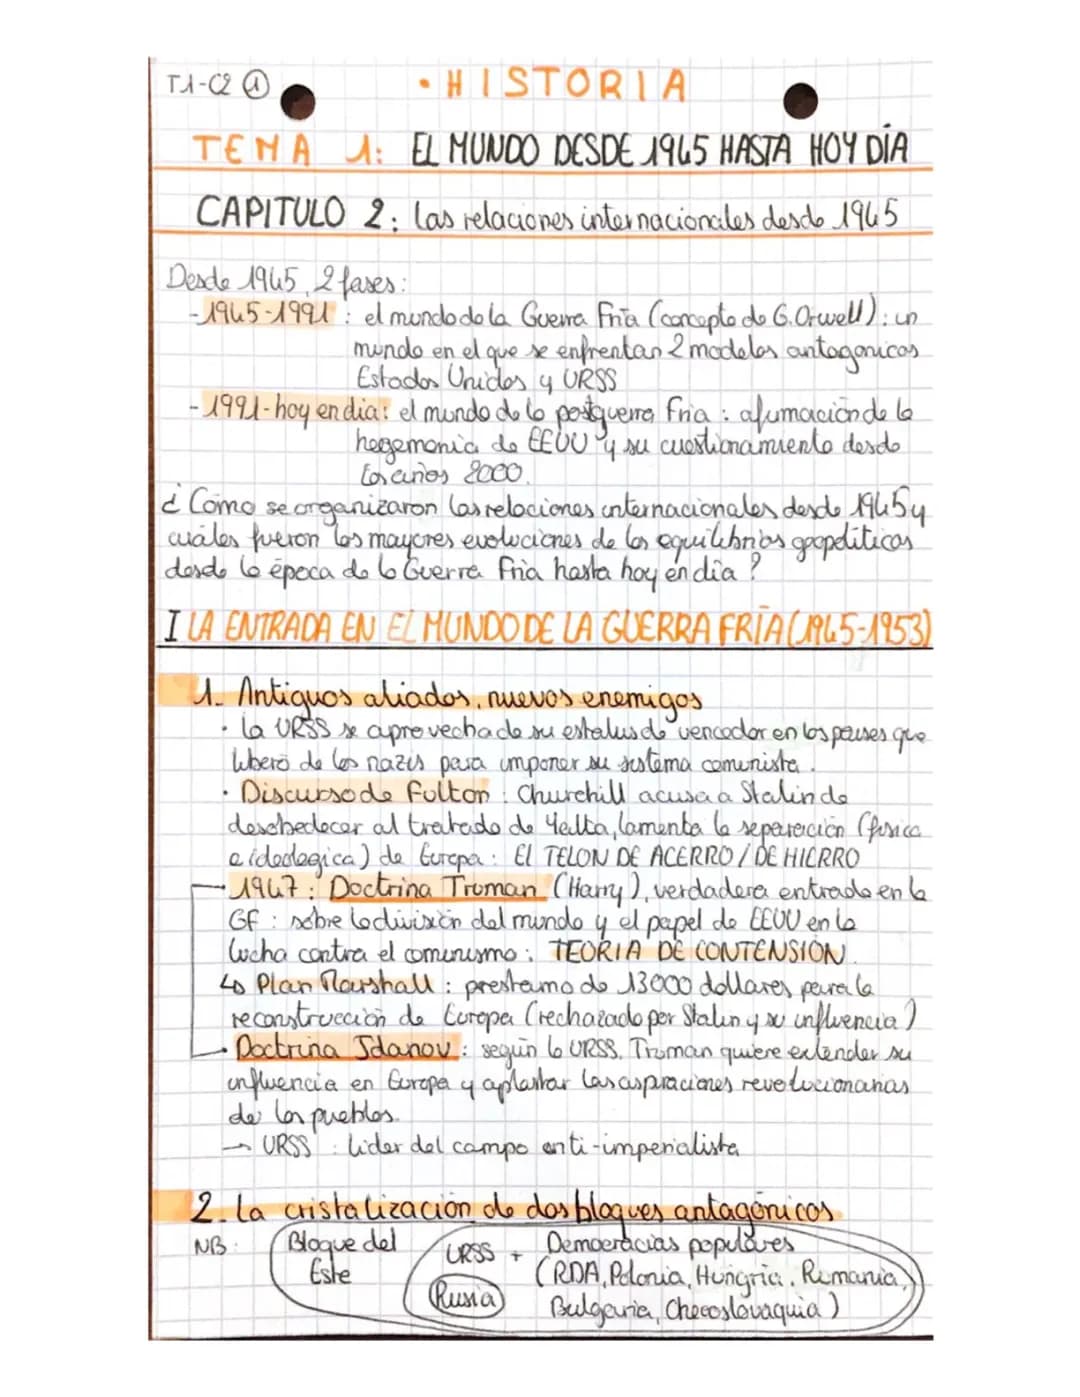 T1-C2 ①
• HISTORIA
TEMA 1: EL MUNDO DESDE 1945 HASTA HOY DÍA
CAPITULO 2: Las relaciones internacionales desde 1945
Desde 1945, 2 fases:
- 1945-1991 : el mundo de la Guerra Fría (concepto de G.Orwell) : un
mundo en el que se enfrentan 2 modelos antagonicos
Estados Unidos y URSS
- 1991-hoy en dia : el mundo de la postguerra Fria : afirmación de la
hegemonia de EEUU y su cuestionamiento desde
los años 2000.
¿ Cómo se organizaron las relaciones internacionales desde 1945 y
cuáles fueron los mayores evoluciones de los equilibrios geopolíticos
desde la época de la Guerra Fría hasta hoy en dia ?
I LA ENTRADA EN EL MUNDO DE LA GUERRA FRÍA (1945-1953)
1. Antiguos aliados, nuevos enemigos
• La URSS se aprovecha de su estatus de vencedor en los paises que
liberó de los nazis para imponer su sistema comunista.
• Discurso de Fulton : Churchill acusa a Stalin de
desobedecer al tratado de Yalta, lamenta la separación (física
e ideologica) de Europa : El TELON DE ACERRO / DE HIERRO
• 1947 : Doctrina Truman (Harry), verdadera entrada en la
GF : sobre la división del mundo y el papel de EEUU en la
lucha contra el comunismo : TEORIA DE CONTENSIÓN.
↳ Plan Marshall : prestamo de 13000 dollares para la
reconstrucción de Europa (rechazado por Stalin y su influencia)
• Doctrina Jdanov : según la URSS, Truman quiere extender su
influencia en Europa y aplastar las aspiraciones revolucionarias
de los pueblos.
→ URSS : lider del campo anti-imperialista
2. La cristalización de dos bloques antagónicos
NB : Bloque del Este
URSS + Democracias populares
(RDA, Polonia, Hungria, Rumania,
Rusia
Bulgaria, Checoslovaquia)